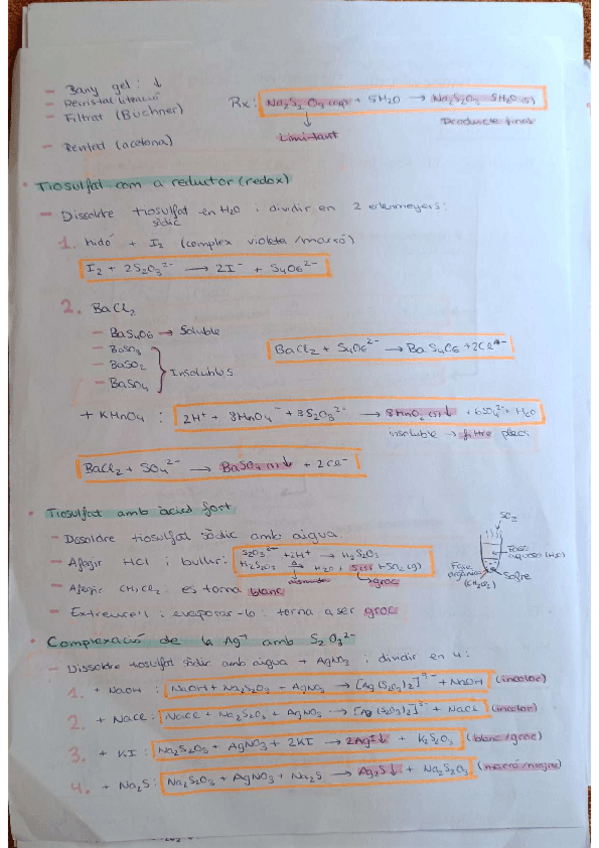 - Bany gel: ↓
- Recristal·lització
- Filtrat (Büchner)
Rx: Na2S2O3 (aq) + 5H2O → Na2S2O3 · 5H2O (s)
↓ Limitant
Producte final
- Rentat (acetona)
• Tiosulfat com a reductor (redox)
- Dissoldre tiosulfat sòdic en H2O i dividir en 2 erlenmeyers:
1. Midó + I2 (complex violeta/marró)
I2 + 2S2O3^2- → 2I^- + S4O6^2-
2. BaCl2
- BaS4O6 → Soluble
- BaSO3
- BaSO2
- BaSO4
} Insolubles
BaCl2 + S4O6^2- → BaS4O6 + 2Cl^-
+ KMnO4 : 2H^+ + 8MnO4^- + 3S2O3^2- → 8MnO2 (s)↓ + 6SO4^2- + H2O
insoluble → filtre
BaCl2 + SO4^2- → BaSO4 (s)↓ + 2Cl^-
• Tiosulfat amb àcid fort
- Dissoldre tiosulfat sòdic amb aigua.
- Afegir HCl i bullir: S2O3^2- + 2H^+ → H2S2O3
H2S2O3 → Δ H2O + S(s) + SO2 (g)
groc
- Afegir CH2Cl2 : es torna blanc
- Extreure'l i evaporar-lo: torna a ser groc
SO2
Fase aquosa (H2O)
Fase orgànica (CH2Cl2)
Sofre
• Complexació de la Ag^+ amb S2O3^2-
- Dissoldre tiosulfat sòdic amb aigua + AgNO3 i dividir en 4:
1. + NaOH : NaOH + Na2S2O3 + AgNO3 → [Ag(S2O3)2]^3- + NaOH (incolor)
2. + NaCl : NaCl + Na2S2O3 + AgNO3 → [Ag(S2O3)2]^3- + NaCl (incolor)
3. + KI : Na2S2O3 + AgNO3 + 2KI → 2AgI↓ + K2S2O3 (blanc/groc)
4. + Na2S : Na2S2O3 + AgNO3 + Na2S → Ag2S↓ + Na2S2O3 (marró/negre)